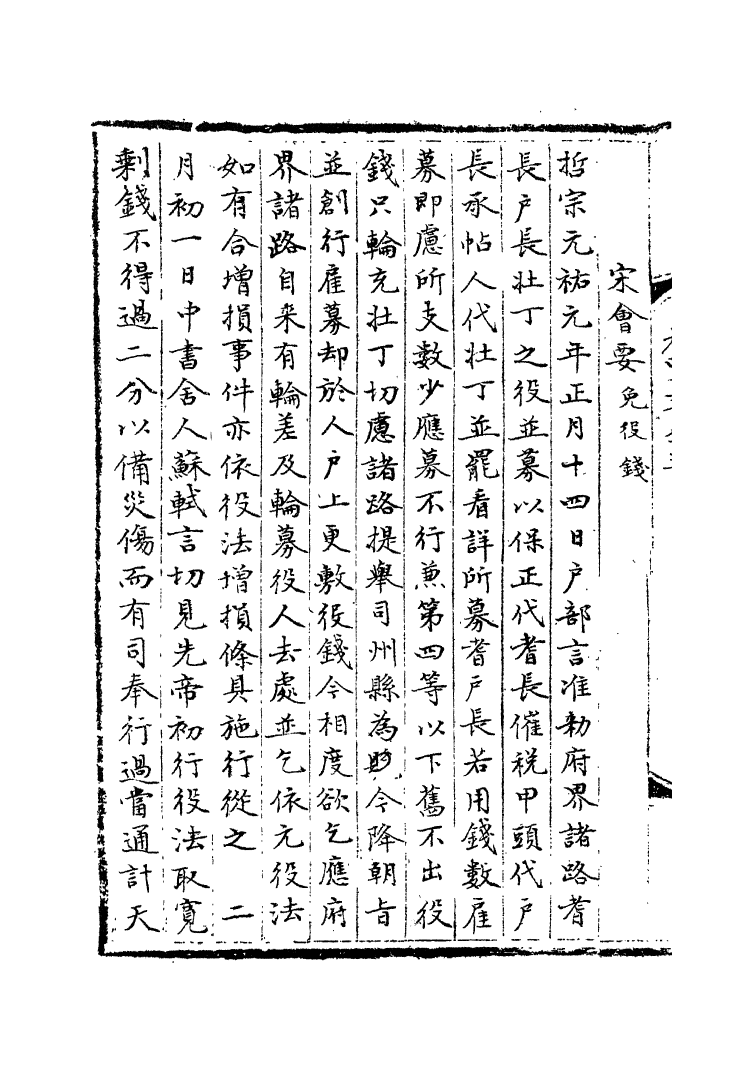 宋會要 免役錢
哲宗元祐元年正月十四日户部言准勑府界諸路耆
長户長壯丁之役並募以保正代耆長催税甲頭代户
長承帖人代壯丁並罷看詳所募耆户長若用錢數雇
募即慮所支數少應募不行兼第四等以下舊不出役
錢只輪充壯丁切慮諸路提舉司州縣為見今降朝旨
並創行雇募却於人户上更敷役錢今相度欲乞應府
界諸路自来有輪差及輪募役人去處並乞依元役法
如有合增損事件亦依役法增損條具施行從之 二
月初一日中書舍人蘇軾言切見先帝初行役法取寛
剩錢不得過二分以備災傷而有司奉行過當通計天